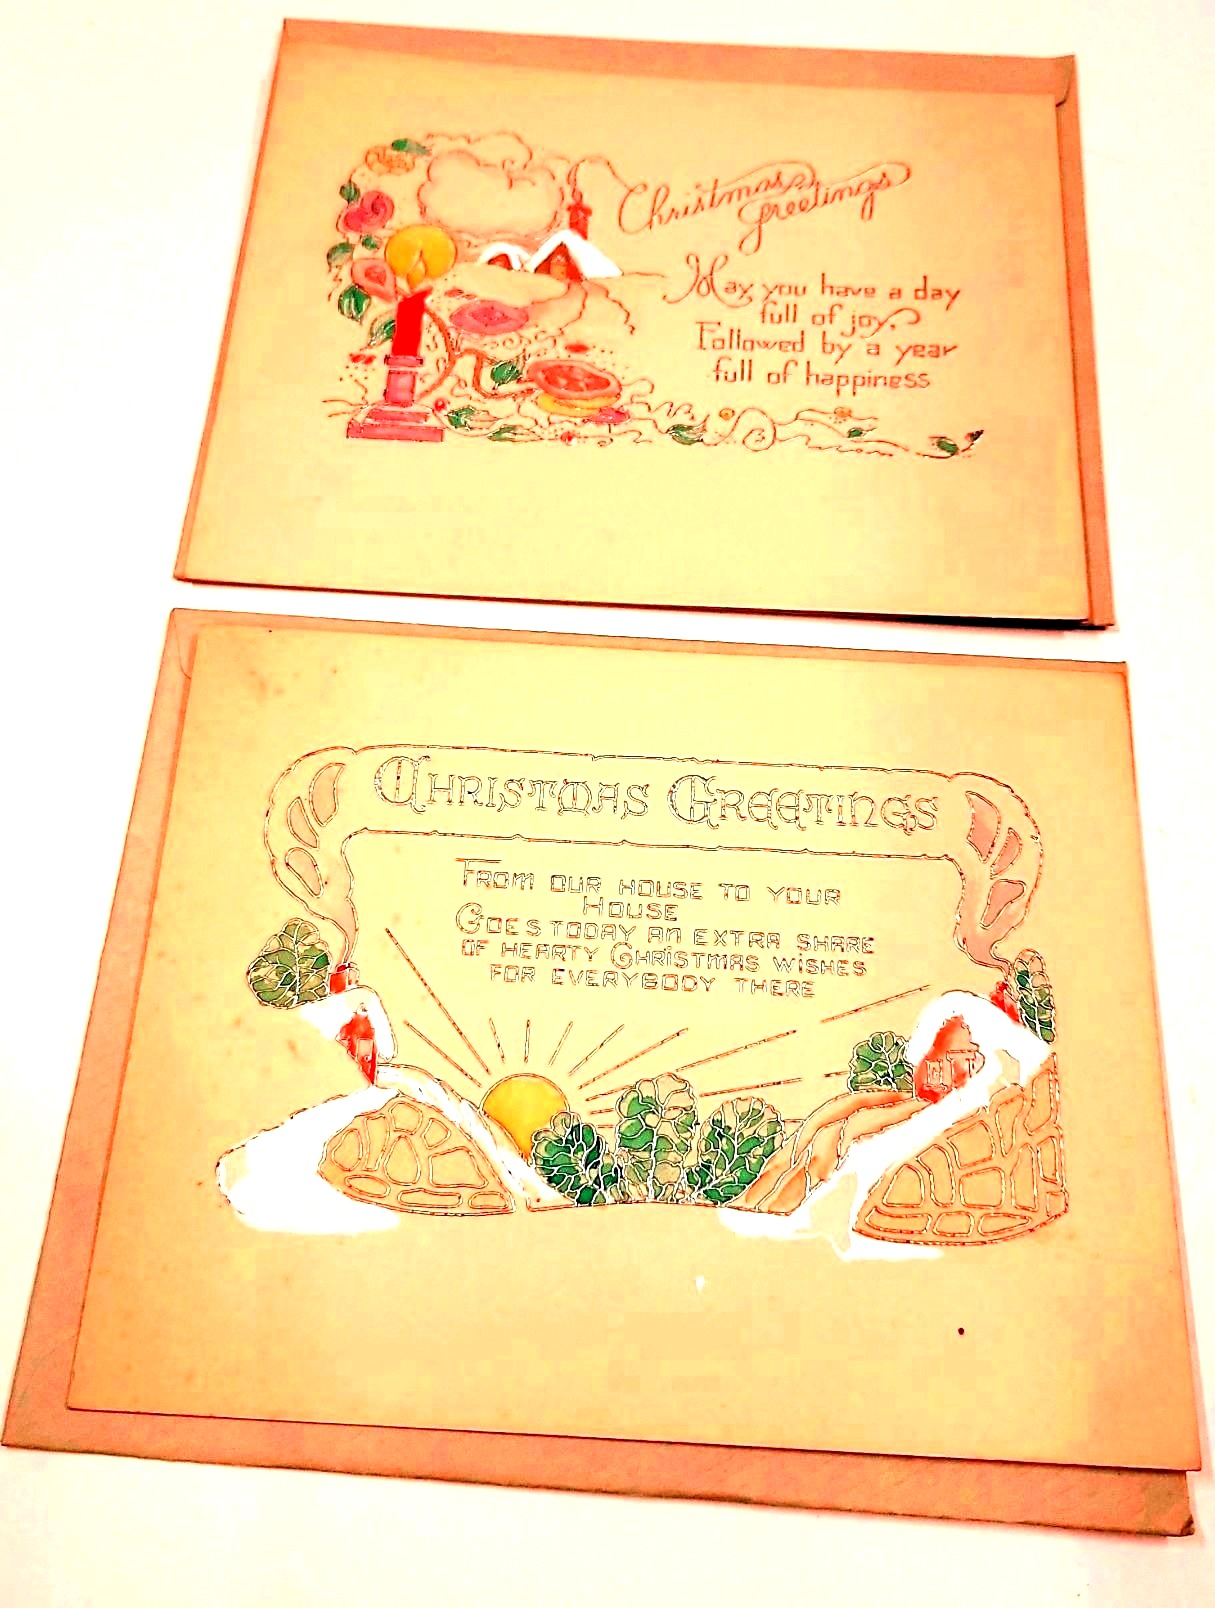 Christmas
Greetings
May you have a day
full of joy,
Followed by a year
full of happiness
CHRISTMAS GREETINGS
FROM OUR HOUSE TO YOUR
HOUSE
GOES TODAY AN EXTRA SHARE
OF HEARTY CHRISTMAS WISHES
FOR EVERYBODY THERE